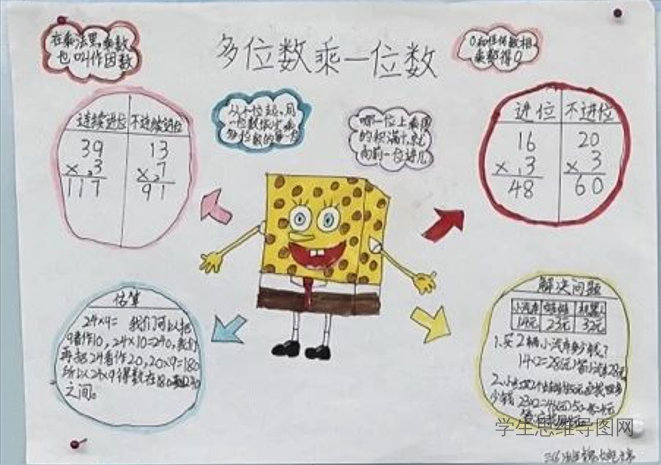 多位数乘一位数
在乘法里,乘数
也叫作因数
0和任何数相
乘都得0
从个位起,用
一位数依次乘
多位数的每一位
哪一位上乘得
的积满十,就
向前一位进几
连续进位 不连续进位
39 13
×.3 ×.7
117 91
进位 不进位
16 20
×.3 ×3
48 60
估算
24×9= 我们可以把
9看作10,24×10=240,我们
再把24看作20,20×9=180
所以24×9得数在180和240
之间。
解决问题
小汽车
14元 23元 32元
1.买2辆小汽车多少钱?
14×2=28(元)
学生思维导图网